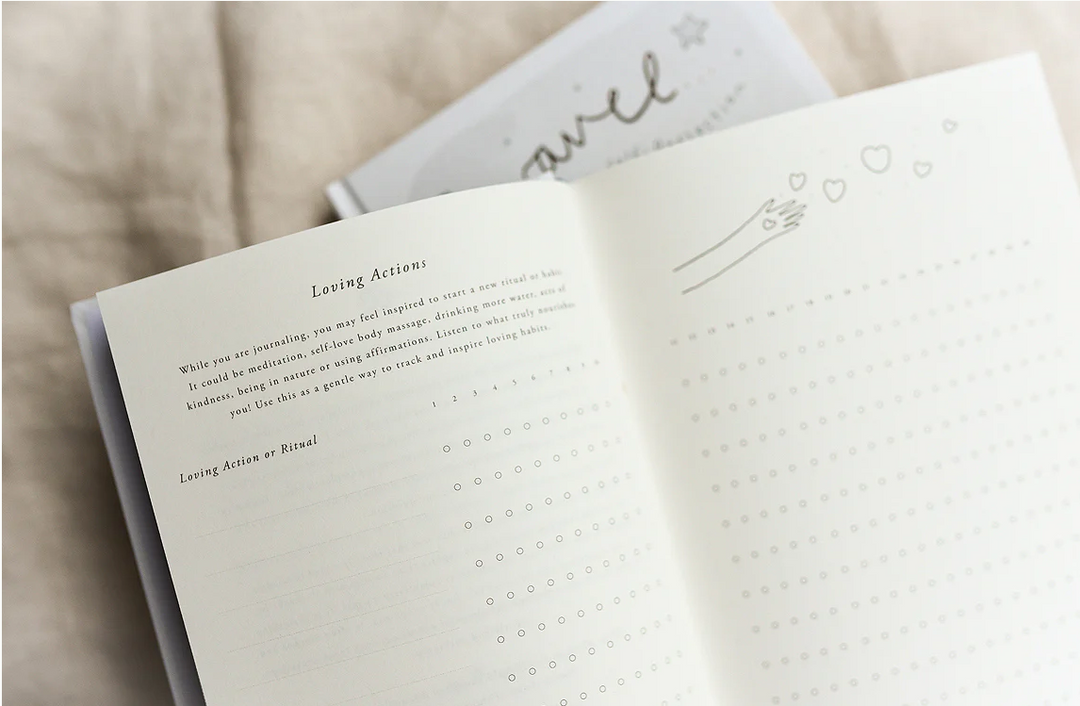 Loving Actions
While you are journaling, you may feel inspired to start a new ritual or habit.
It could be meditation, self-love body massage, drinking more water, acts of
kindness, being in nature or using affirmations. Listen to what truly nourishes
you! Use this as a gentle way to track and inspire loving habits.
1 2 3 4 5 6 7 8
Loving Action or Ritual